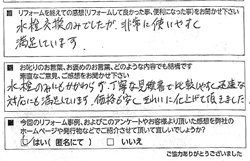 ■リフォームを終えての感想(リフォームして良かった事、便利になった事)をお聞かせ下さい
水栓交換のみでしたが、非常に使いやすく
満足しています。
■お叱りのお言葉、お褒めのお言葉、どのような内容でも結構です
率直なご意見、ご感想をお聞かせ下さい
水栓のみにもかかわらず、丁寧な見積書で比較しやすく迅速な
対応にも満足しています。価格も安くきれいに仕上げて頂きました
■今回のリフォーム事例、およびこのアンケートやお客様より頂いた感想を弊社の
ホームページや発行物などでご紹介させて頂いて宜しいでしょうか?
はい(匿名にて) ・ いいえ
ご協力ありがとうございました